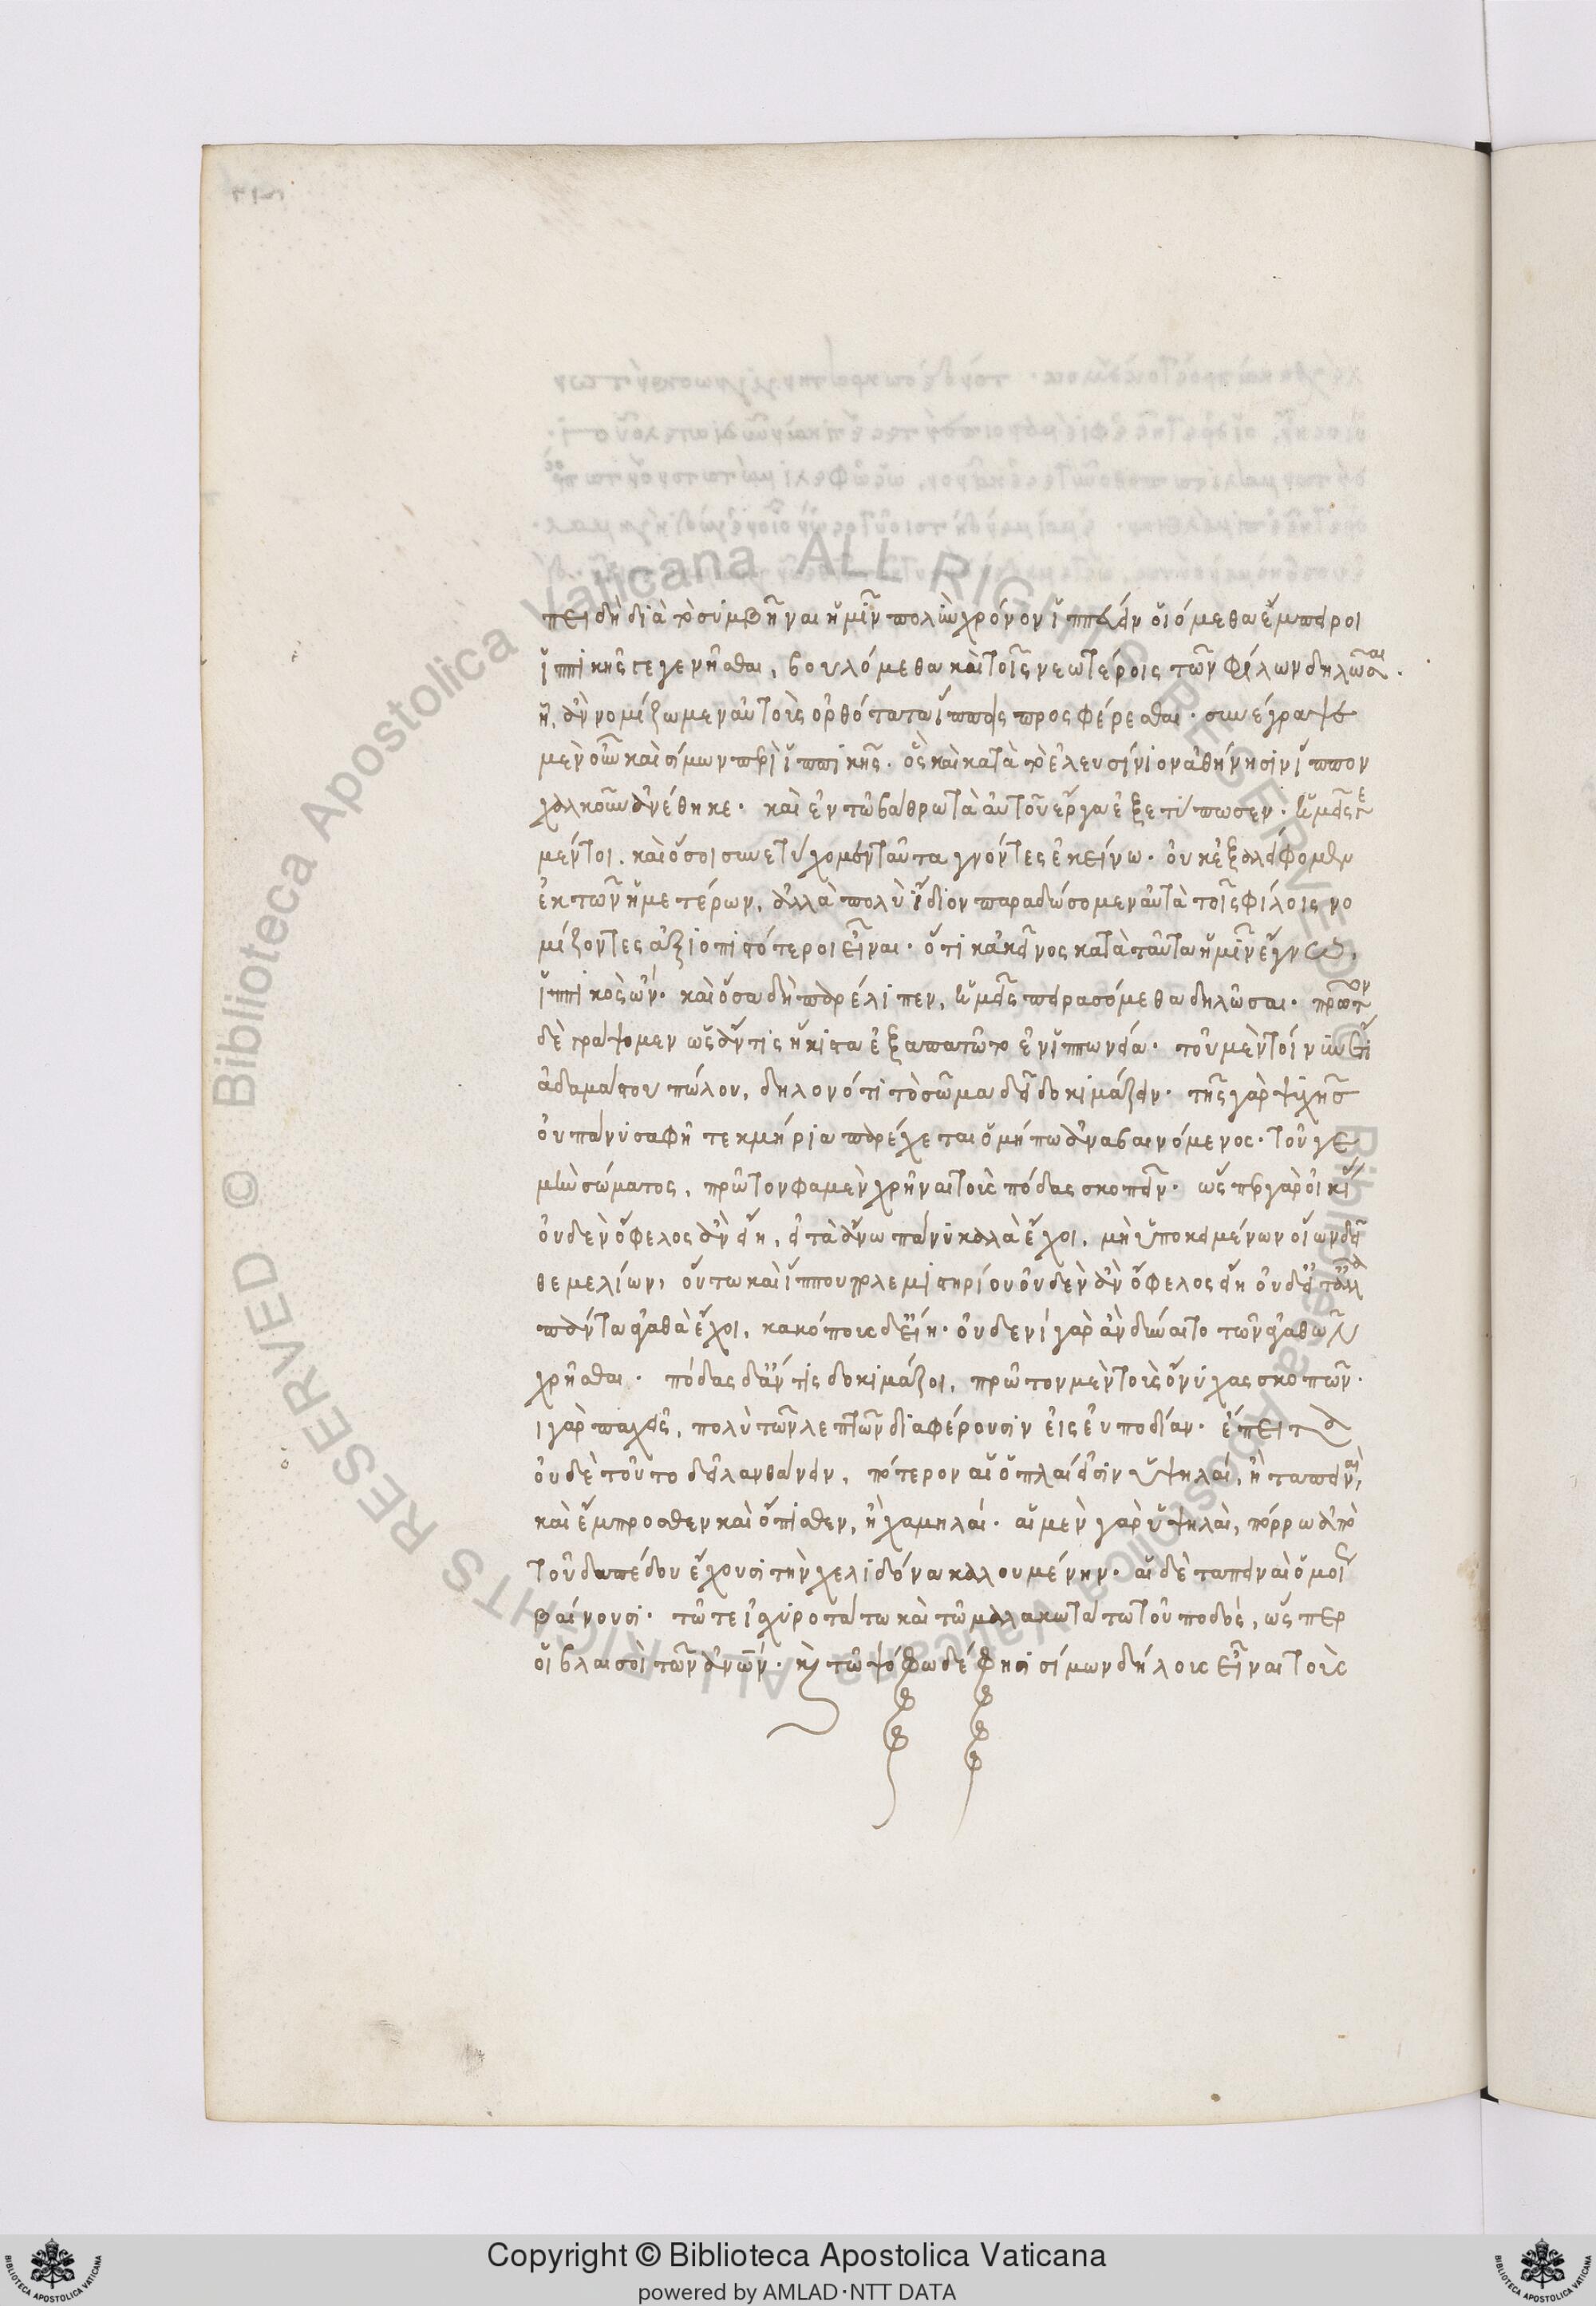 πειδὴ διὰ τὸ συμβῆναι ἡμῖν πολὺν χρόνον ἱππεύειν οἰόμεθα ἔμπειροι
ἱππικῆς γεγενῆσθαι, βουλόμεθα καὶ τοῖς νεωτέροις τῶν φίλων δηλῶσαι.
ἧ, ἂν νομίζωμεν αὐτοὺς ὀρθότατα ἵπποις προσφέρεσθαι. συνέγραψε
μὲν οὖν καὶ σίμων περὶ ἱππικῆς. ὃς καὶ κατὰ τὸ ἐλευσίνιον ἀθήνησιν ἵππον
χαλκοῦν ἀνέθηκε. καὶ ἐν τῷ βάθρῳ τὰ αὐτοῦ ἔργα ἐξετύπωσεν. ἡμεῖς γε
μέντοι, καὶ ὅσοις συνετύχομεν ταῦτα γνόντες ἐκείνω. οὐκ ἐξαλείφομεν
ἐκ τῶν ἡμετέρων, ἀλλὰ πολὺ ἴδιον παραδώσομεν αὐτὰ τοῖς φίλοις νο
μίζοντες ἀξιοπιστότεροι εἶναι. ὅτι κἀκεῖνος κατὰ ταῦτα ἡμῖν ἔγνω,
ἱππικὸς ὤν. καὶ ὅσα δὴ παρέλιπεν, ἡμεῖς πειρασόμεθα δηλῶσαι. πρῶτον
δὲ γράψομεν ὡς ἄν τις ἥκιστα ἐξαπατῷτο ἐν ἱππωνεία. τοῦ μὲν τοίνυν ἔτι
ἀδαμάστου πώλου, δῆλον ὅτι τὸ σῶμα δεῖ δοκιμάζειν. τῆς γὰρ ψυχῆς
οὐ πάνυ σαφῆ τεκμήρια παρέχεται ὁ μήπω ἀναβαινόμενος. τοῦ γε
μὴν σώματος, πρῶτον φαμὲν χρῆναι τοὺς πόδας σκοπεῖν. ὥσπερ γὰρ οἰκί
οὐδὲν ὄφελος ἂν εἴη, εἰ τὰ ἄνω πάνυ καλὰ ἔχοι, μὴ ὑποκειμένων οἵων δεῖ
θεμελίων, οὕτω καὶ ἵππου πολεμιστηρίου οὐδὲν ἂν ὄφελος εἴη οὐδ' εἰ τἄλλα
πάντα ἀγαθὰ ἔχοι, κακόπους δ' εἴη. οὐδενὶ γὰρ ἂν δύναιτο τῶν ἀγαθῶν
χρῆσθαι. πόδας δ' ἄν τις δοκιμάζοι, πρῶτον μὲν τοὺς ὄνυχας σκοπῶν.
ι γὰρ παχεῖς, πολὺ τῶν λεπτῶν διαφέρουσιν εἰς εὐποδίαν. ἔπειτα
οὐδὲ τοῦτο δεῖ λανθάνειν, πότερον αἱ ὁπλαί εἰσιν ὑψηλαί, ἢ ταπειναὶ,
καὶ ἔμπροσθεν καὶ ὄπισθεν, ἢ χαμηλαί. αἱ μὲν γὰρ ὑψηλαὶ, πόρρω ἀπὸ
τοῦ δαπέδου ἔχουσι τὴν χελιδόνα καλουμένην. αἱ δὲ ταπειναὶ ὁμοί
βαίνουσι. τῷ τε ἰσχυροτάτω καὶ τῷ μαλακωτάτω τοῦ ποδός, ὥσπερ
οἱ βλαισοὶ τῶν ἀνῶν. κ τῷ ψόφω δέ φησι σίμων δήλους εἶναι τοὺς